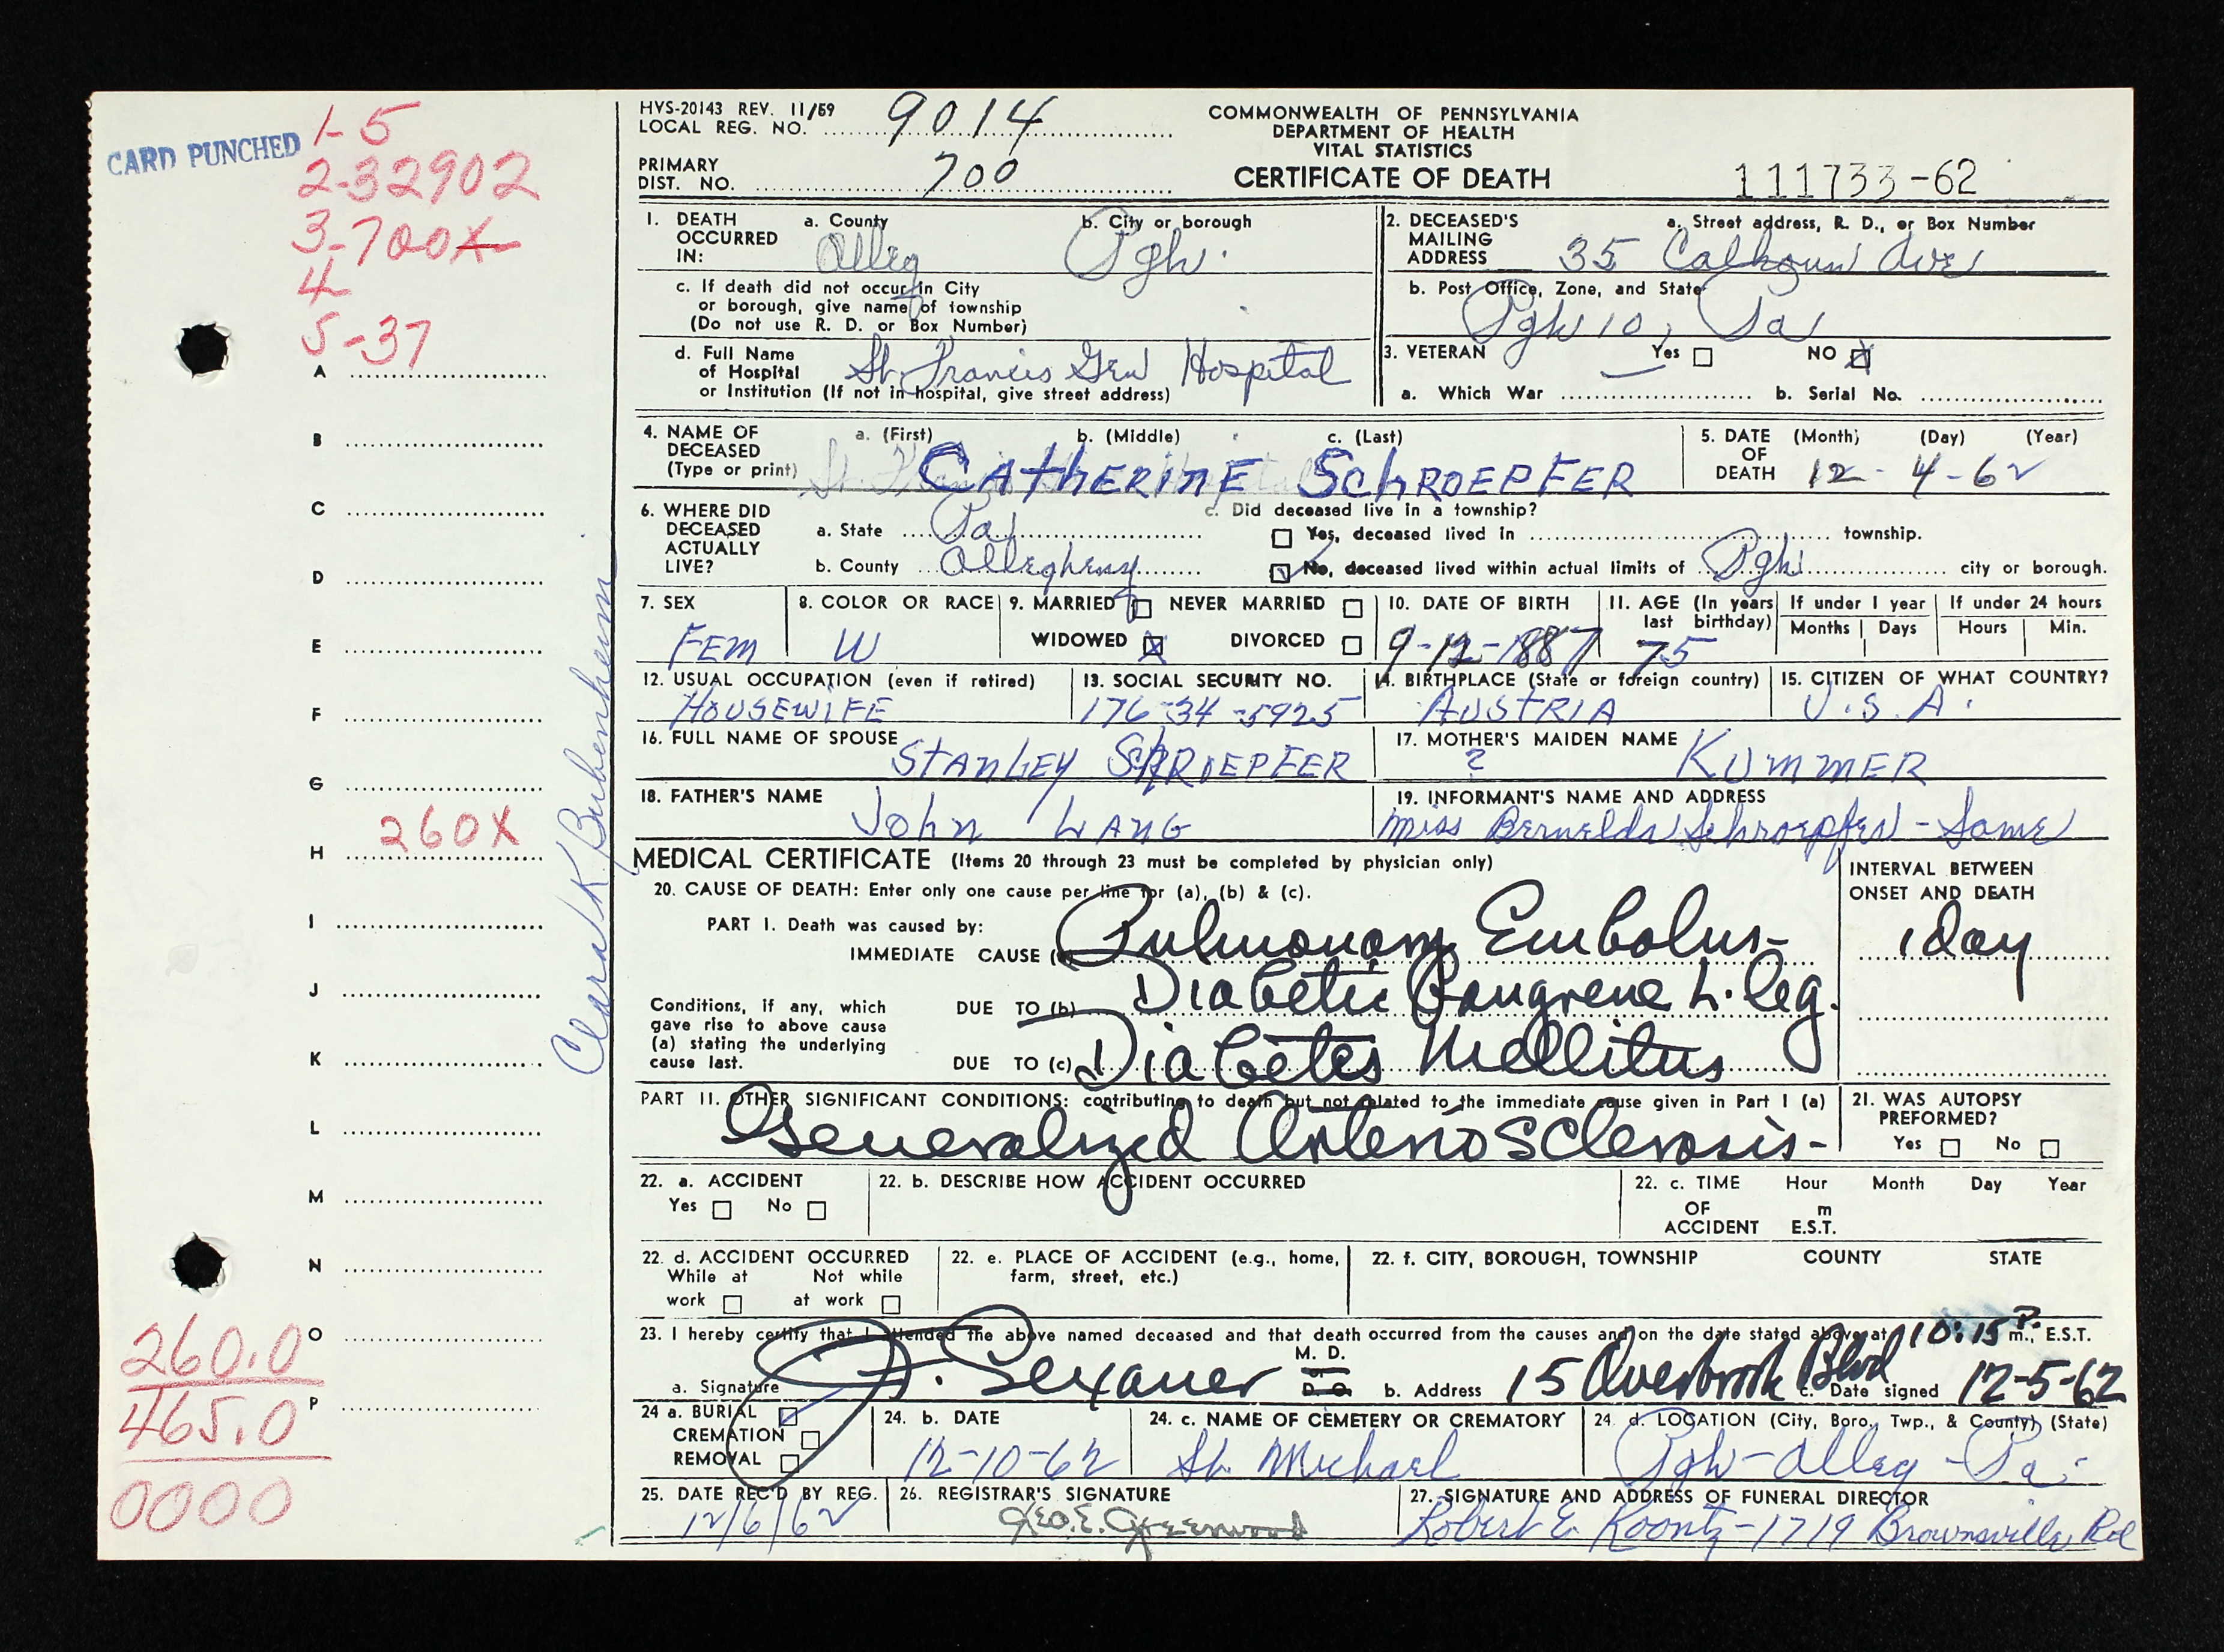 CARD PUNCHED
1-5
2-32902
3-700X
4
5-37
A
B
C
D
E
F
G
260X
H
I
J
K
L
M
N
O
P
260.0
465.0
0000
HVS-20143 REV. 11/59
LOCAL REG. NO. 9014
PRIMARY
DIST. NO. 700
COMMONWEALTH OF PENNSYLVANIA
DEPARTMENT OF HEALTH
VITAL STATISTICS
CERTIFICATE OF DEATH
111733-62
1. DEATH OCCURRED IN: a. County Alleg b. City or borough Pgh.
c. If death did not occur in City
or borough, give name of township
(Do not use R. D. or Box Number)
d. Full Name
of Hospital St. Francis Gen Hospital
or Institution (If not in hospital, give street address)
2. DECEASED'S MAILING ADDRESS a. Street address, R. D., or Box Number
35 Calhoun Ave
b. Post Office, Zone, and State
Pgh 10, Pa
3. VETERAN Yes NO X
a. Which War b. Serial No.
4. NAME OF DECEASED (Type or print) a. (First) b. (Middle) c. (Last)
CATHERINE SCHROEPFER
5. DATE OF DEATH (Month) (Day) (Year)
12-4-62
6. WHERE DID DECEASED ACTUALLY LIVE?
a. State Pa
b. County Allegheny
c. Did deceased live in a township?
Yes, deceased lived in township.
No, deceased lived within actual limits of Pgh city or borough.
7. SEX
FEM
8. COLOR OR RACE
W
9. MARRIED NEVER MARRIED
WIDOWED X DIVORCED
10. DATE OF BIRTH
9-12-1887
11. AGE (In years last birthday)
75
If under 1 year
Months Days
If under 24 hours
Hours Min.
12. USUAL OCCUPATION (even if retired)
HOUSEWIFE
13. SOCIAL SECURITY NO.
176-34-5925
14. BIRTHPLACE (State or foreign country)
AUSTRIA
15. CITIZEN OF WHAT COUNTRY?
U.S.A.
16. FULL NAME OF SPOUSE
STANLEY SCHROEPFER
17. MOTHER'S MAIDEN NAME
? KUMMER
18. FATHER'S NAME
JOHN LANG
19. INFORMANT'S NAME AND ADDRESS
Miss Schroepfer - Same
MEDICAL CERTIFICATE (Items 20 through 23 must be completed by physician only)
20. CAUSE OF DEATH: Enter only one cause per line for (a), (b) & (c).
PART I. Death was caused by:
IMMEDIATE CAUSE (a) Pulmonary Embolus-
Conditions, if any, which
gave rise to above cause
(a) stating the underlying
cause last.
DUE TO (b) Diabetic Gangrene L. leg.
DUE TO (c) Diabetes Mellitus
INTERVAL BETWEEN
ONSET AND DEATH
1 day
PART II. OTHER SIGNIFICANT CONDITIONS: contributing to death but not related to the immediate cause given in Part I (a)
Generalized Arteriosclerosis-
21. WAS AUTOPSY
PREFORMED?
Yes No
22. a. ACCIDENT
Yes No
22. b. DESCRIBE HOW ACCIDENT OCCURRED
22. c. TIME Hour Month Day Year
OF m
ACCIDENT E.S.T.
22. d. ACCIDENT OCCURRED
While at Not while
work at work
22. e. PLACE OF ACCIDENT (e.g., home,
farm, street, etc.)
22. f. CITY, BOROUGH, TOWNSHIP COUNTY STATE
23. I hereby certify that I attended the above named deceased and that death occurred from the causes and on the date stated above at 10:15 P. m., E.S.T.
a. Signature J. Sexauer M. D. or D. O. b. Address 15 Overbrook Blvd c. Date signed 12-5-62
24 a. BURIAL
CREMATION
REMOVAL
24. b. DATE
12-10-62
24. c. NAME OF CEMETERY OR CREMATORY
St. Michael
24. d. LOCATION (City, Boro., Twp., & County) (State)
Pgh-Alleg-Pa.
25. DATE REC'D BY REG.
12/6/62
26. REGISTRAR'S SIGNATURE
Geo. E. Greenwood
27. SIGNATURE AND ADDRESS OF FUNERAL DIRECTOR
Robert E. Koontz-1719 Brownsville Rd